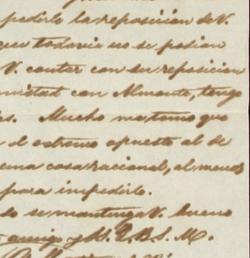 pedirle la reposicion de V.
que todavia no se podian
V. contar con su reposicion
mistad con Almonte, tengo
es. Mucho me temo que
el estremo opuesto al de
una cosa racional, al menos
para impedirlo.
do se mantenga V. bueno
amigo y S. Q. B. S. M.